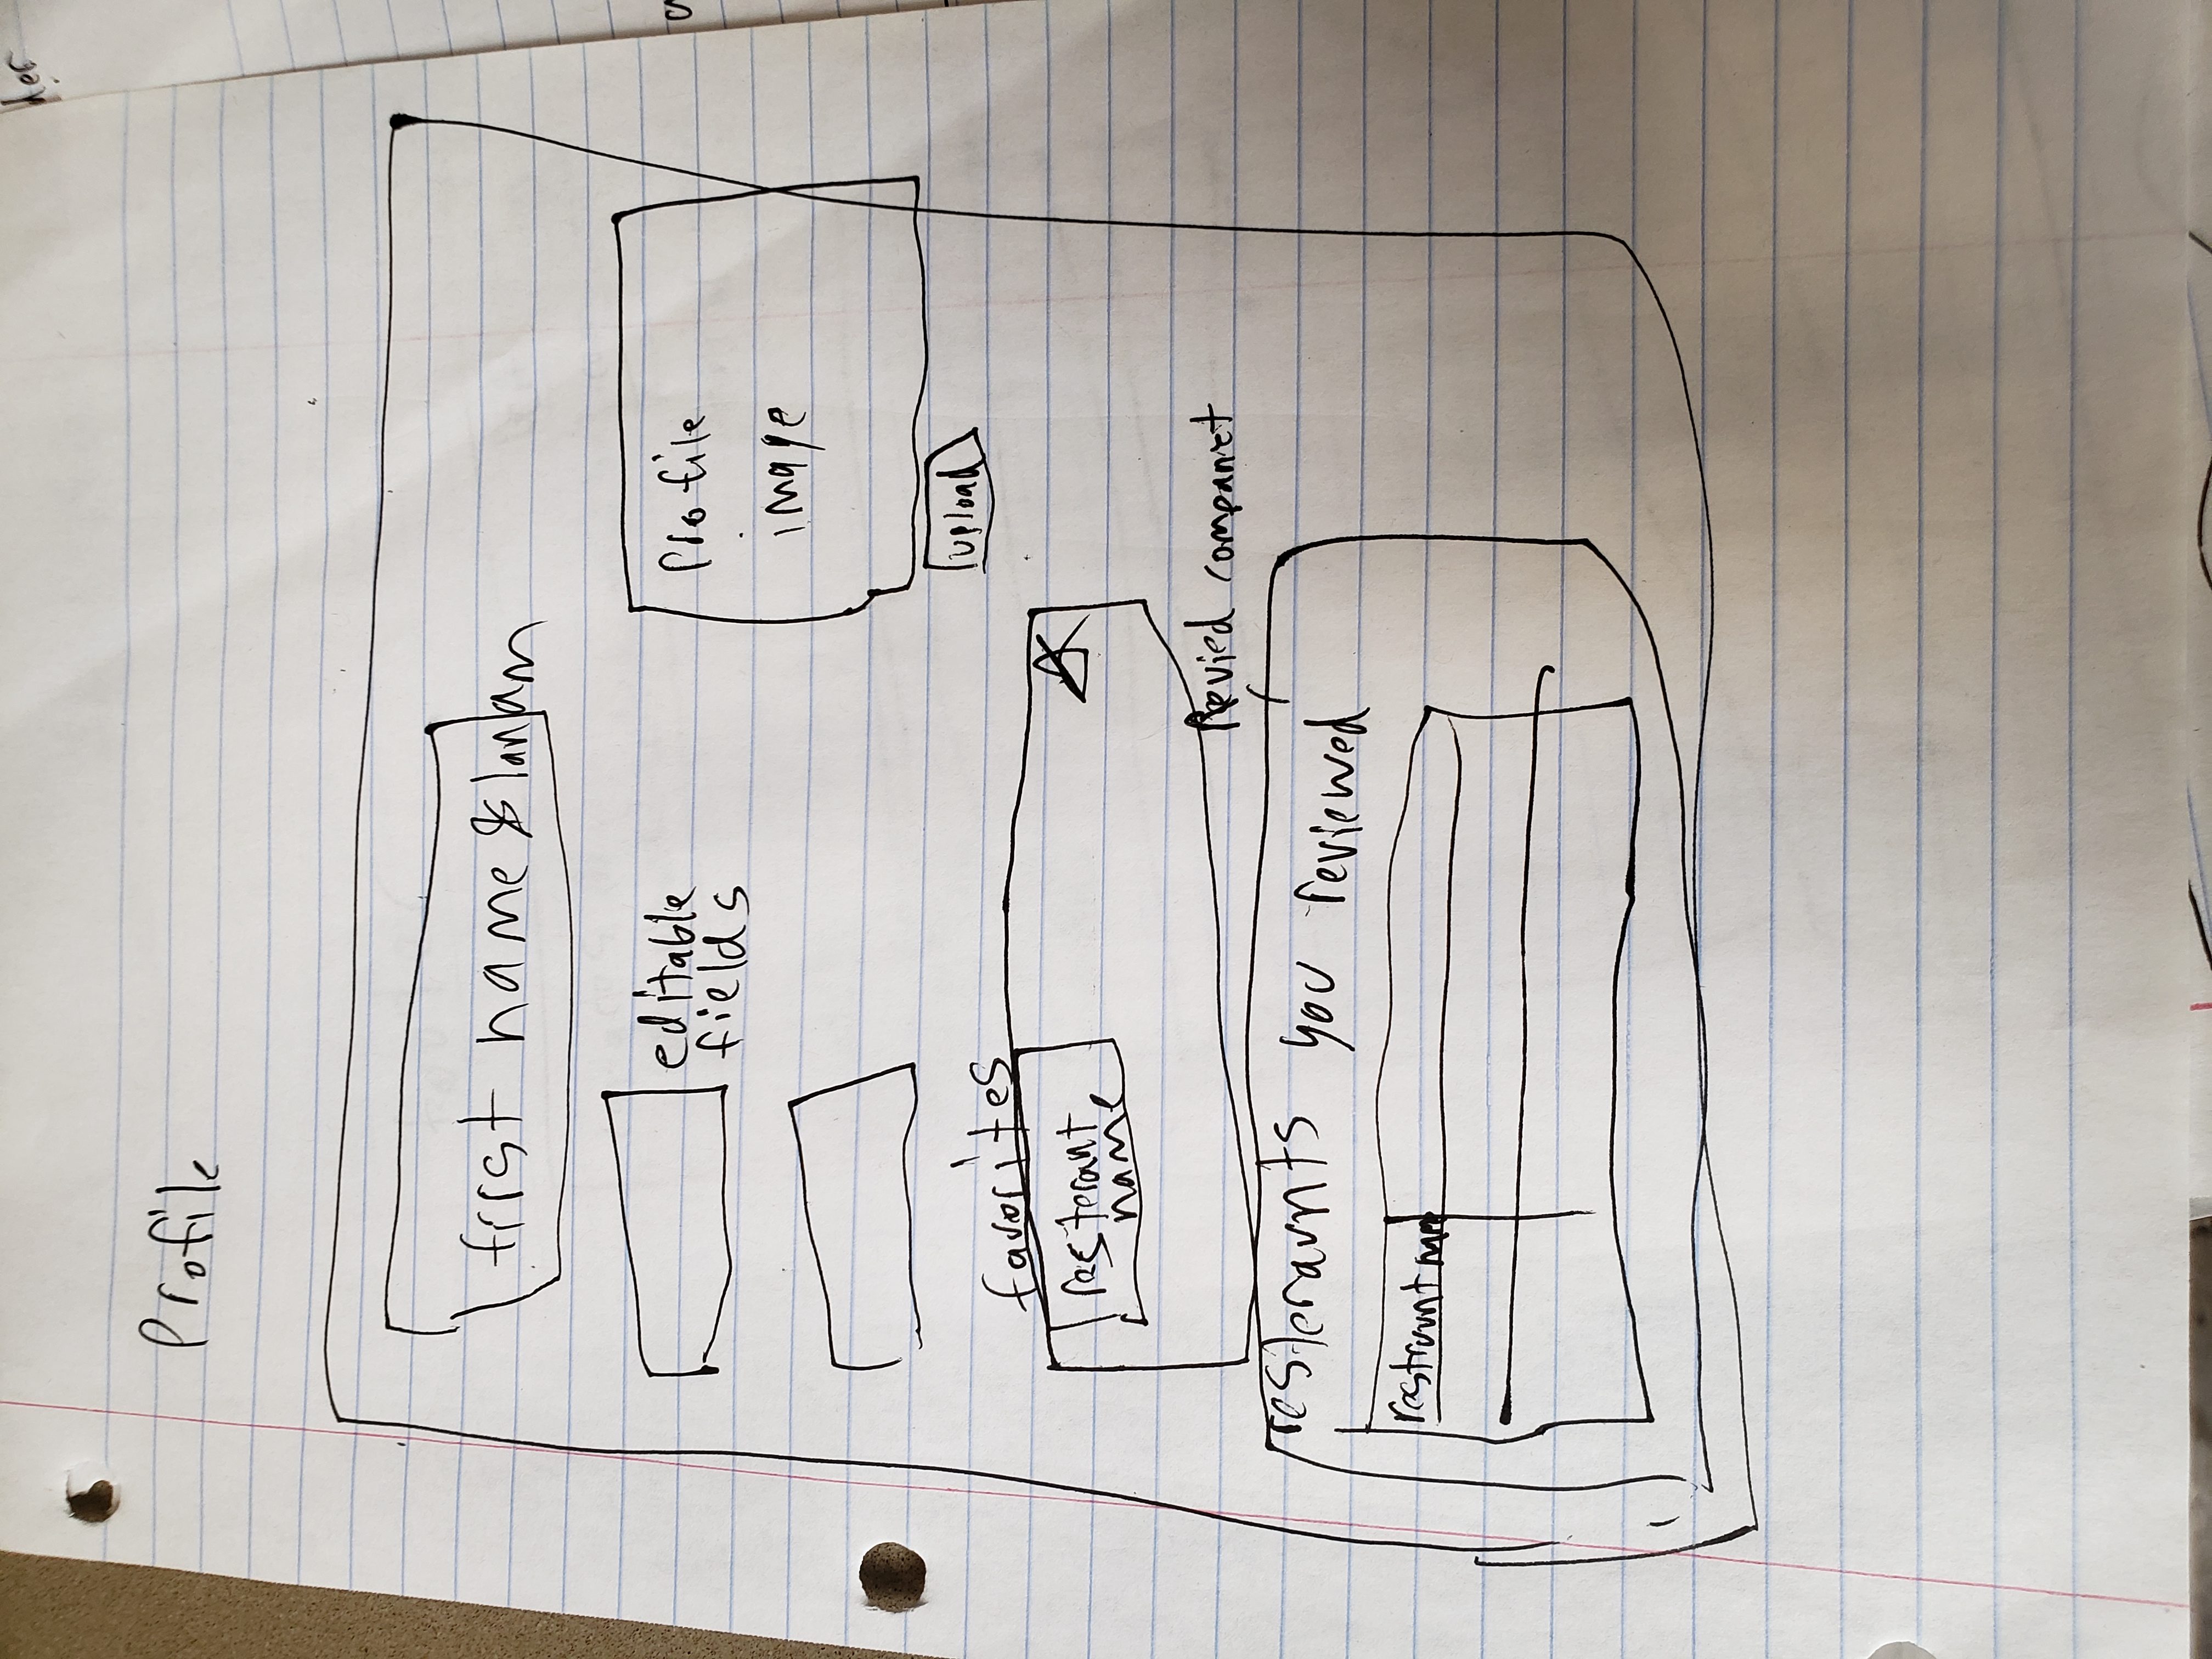 Profile
first name & lanam
editable
fields
Profile
image
upload
favorites
resterant
name
Revied companet
resteraunts you reviewed
der